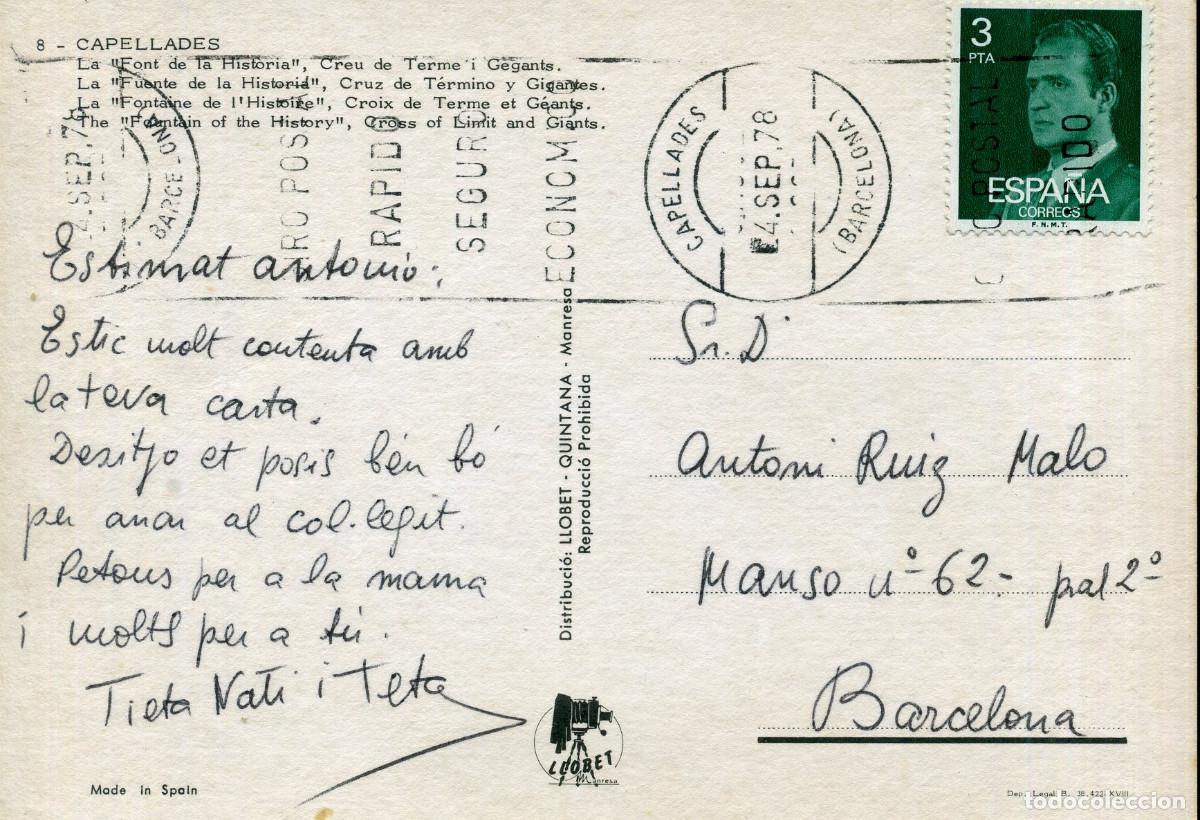 8 - CAPELLADES
La "Font de la Historia", Creu de Terme i Gegants.
La "Fuente de la Historia", Cruz de Término y Gigantes.
La "Fontaine de l'Histoire", Croix de Terme et Géants.
The "Fountain of the History", Cross of Limit and Giants.
4.SEP.78
BARCELON
RO POSTAL
RAPIDO
SEGURO
ECONOMICO
CAPELLADES
4.SEP.78
(BARCELONA)
3
PTA
ESPAÑA
CORREOS
F.N.M.T.
POSTAL
RAPIDO
Estimat Antonio:
Estic molt contenta amb
la teva carta.
Desitjo et posis bén bó
per anar al col.legit.
Petons per a la mama
i molts per a tu.
Tieta Nati i Teta
Distribució: LLOBET - QUINTANA - Manresa
Reproducció Prohibida
Sr. D
Antoni Ruiz Malo
Manso nº 62 - pral 2º
Barcelona
LLOBET
Manresa
Made in Spain
Dep. Legal B. 38.422-XVIII
todocoleccion